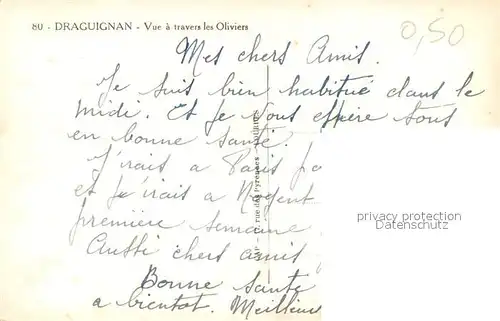 80 - DRAGUIGNAN - Vue à travers les Oliviers
0,50
Mes chers Amis.
Je suis bien habitué dans le
midi. Et Je vous espère tous
en bonne santé.
J'irais a Paris
et Je irais a Nogent
première semaine
Aussi chers amis
Bonne sante
a bientot. Meilleur
rue des Pyrénées
privacy protection
Datenschutz